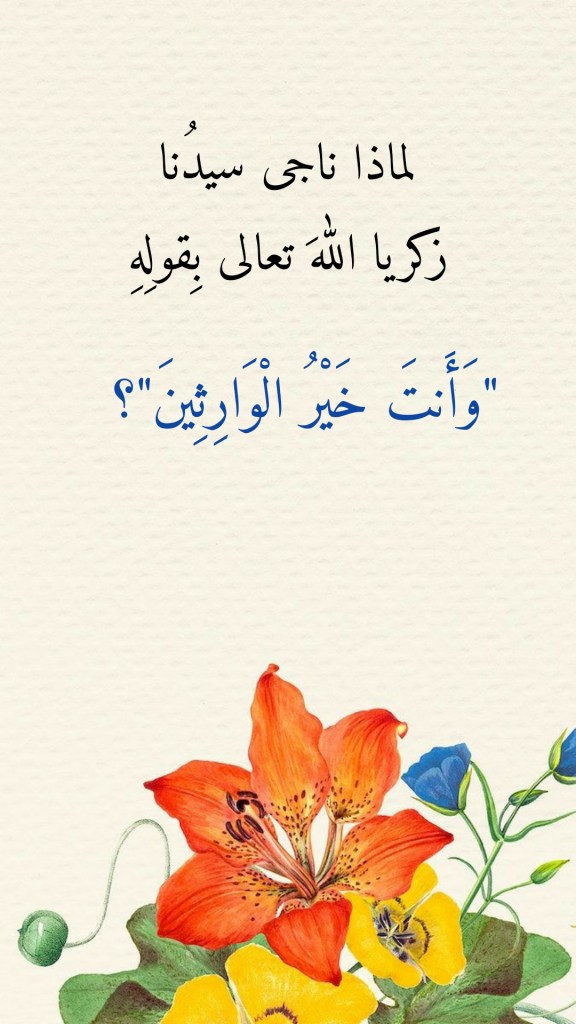 لماذا ناجى سيدُنا
زكريا اللهَ تعالى بِقولِهِ
"وَأَنتَ خَيْرُ الْوَارِثِينَ"؟